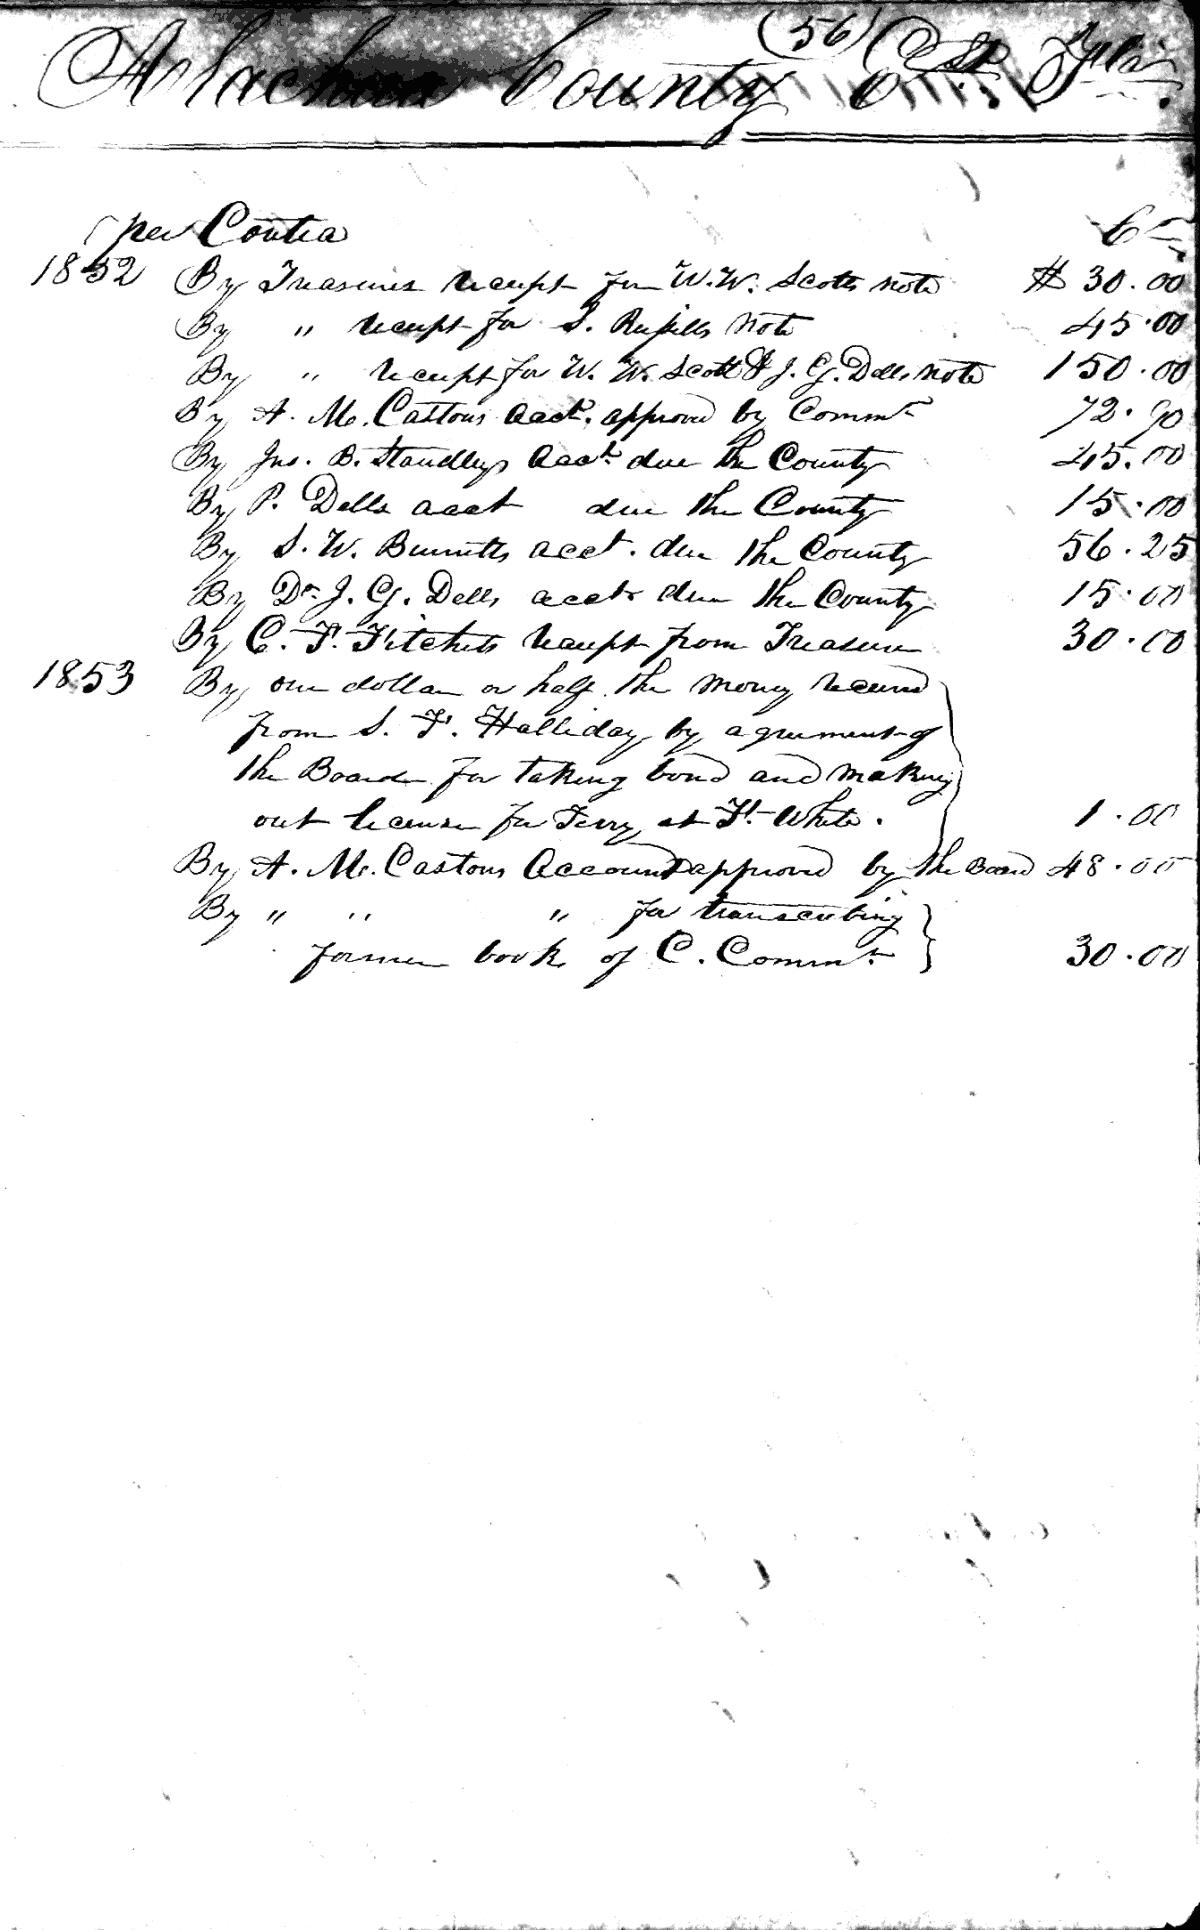 (56)
Alachua County Est. Fla.
per Contra Cr
1852 By Treasurers receipt for W. W. Scotts note $ 30.00
By " receipt for S. Russells note 45.00
By " receipt for W. W. Scott & J. G. Dells note 150.00
By A. Mc. Castons acct. approved by Commrs 72.90
By Jno. B. Standleys acct. due the County 45.00
By P. Dells acct due the County 15.00
By S. W. Burnetts acct. due the County 56.25
By Dr. J. G. Dells acct due the County 15.00
By C. F. Fitchetts receipt from Treasurer 30.00
1853 By one dollar or half the money received
from S. F. Halliday by agreement of
the Board for taking bond and making
out license for Ferry at Ft. White. 1.00
By A. Mc. Castons Account approved by the Board 48.00
By " " " for transcribing
former book of C. Commrs 30.00